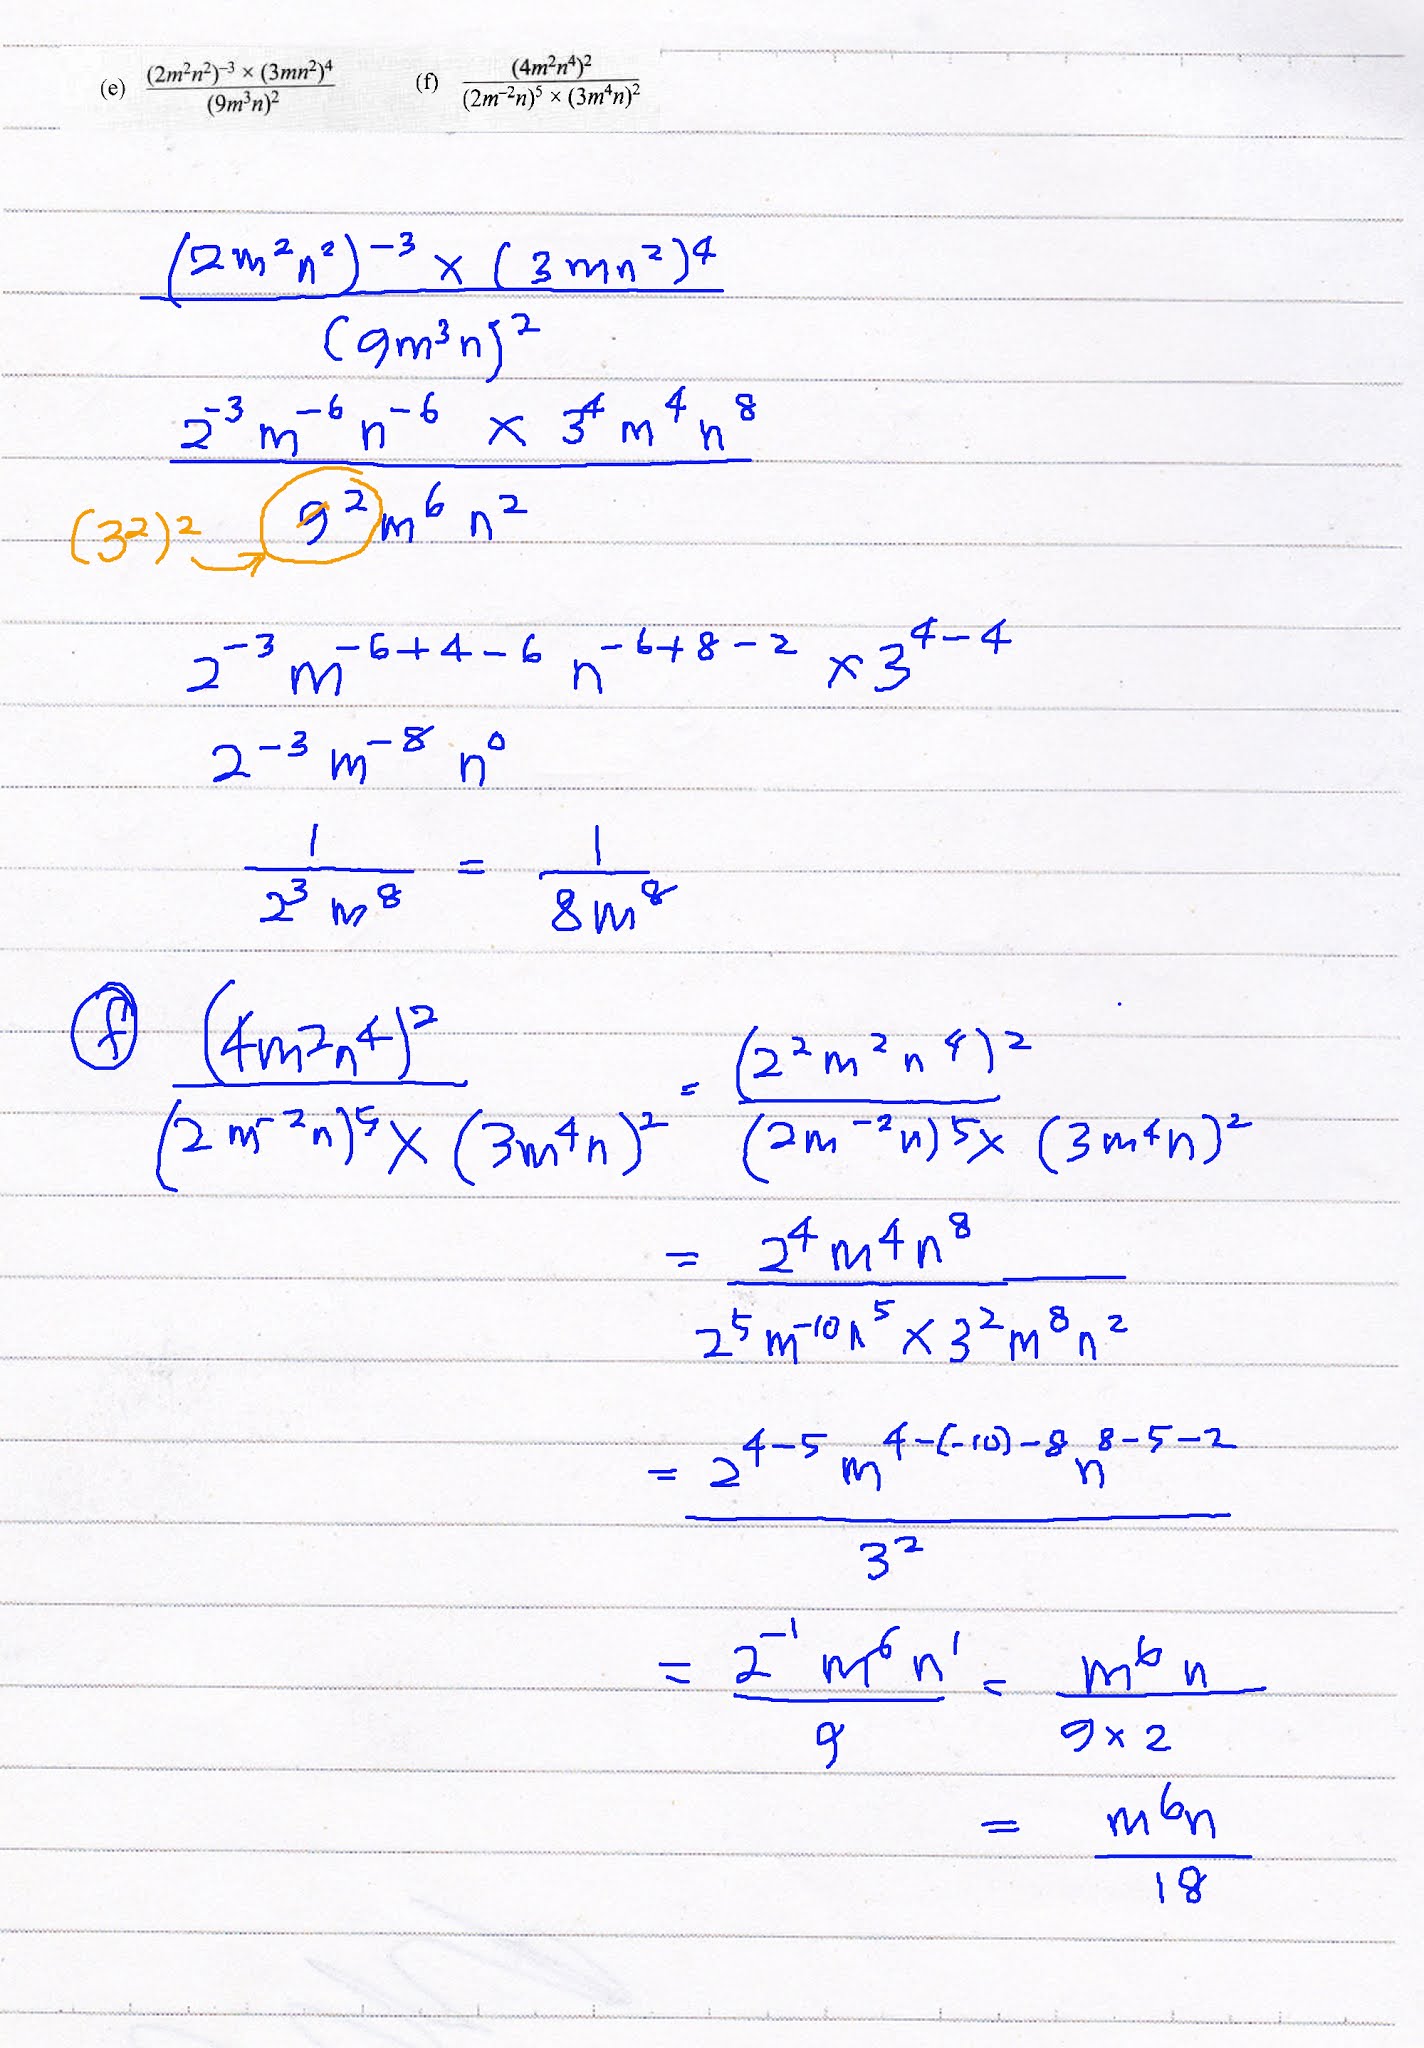 (e) (2m²n²)⁻³ × (3mn²)⁴ / (9m³n)² (f) (4m²n⁴)² / (2m⁻²n)⁵ × (3m⁴n)²
(2m²n²)⁻³ × (3mn²)⁴
(9m³n)²
2⁻³ m⁻⁶ n⁻⁶ × 3⁴ m⁴ n⁸
(3²)² → 9² m⁶ n²
2⁻³ m⁻⁶⁺⁴⁻⁶ n⁻⁶⁺⁸⁻² × 3⁴⁻⁴
2⁻³ m⁻⁸ n⁰
1 / 2³ m⁸ = 1 / 8m⁸
f (4m²n⁴)² / (2m⁻²n)⁵ × (3m⁴n)² = (2²m²n⁴)² / (2m⁻²n)⁵ × (3m⁴n)²
= 2⁴ m⁴ n⁸
2⁵ m⁻¹⁰ n⁵ × 3² m⁸ n²
= 2⁴⁻⁵ m⁴⁻⁽⁻¹⁰⁾⁻⁸ n⁸⁻⁵⁻²
3²
= 2⁻¹ m⁶ n¹ / 9 = m⁶ n / 9 × 2
= m⁶n
18